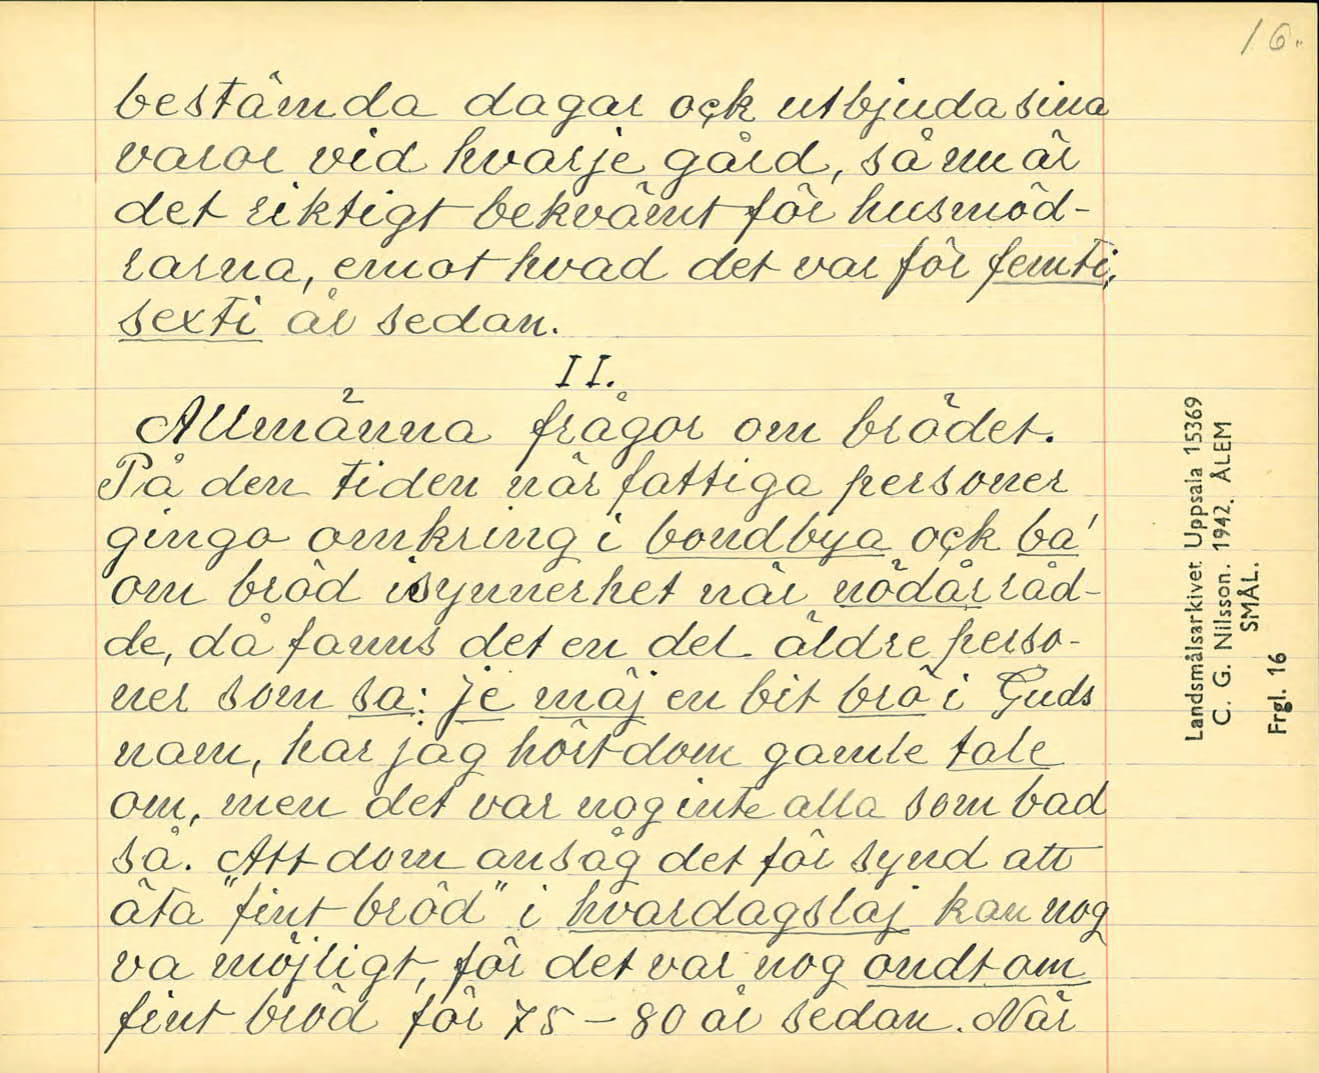 16.
bestämda dagar ock utbjuda sina
varor vid hvarje gård, så nu är
det riktigt bekvämt för husmöd-
rarna, emot hvad det var för femti,
sexti år sedan.
II.
Allmänna frågor om brödet.
På den tiden när fattiga personer
gingo omkring i bondbya ock ba'
om bröd isynnerhet när nödår råd-
de, då fanns det en del äldre perso-
ner som sa: je mäj en bit brö i Guds
nam, har jag hört dom gamle tale
om, men det var nog inte alla som bad
så. Att dom ansåg det för synd att
äta "fint bröd" i hvardagslaj kan nog
va möjligt, för det var nog ondt om
fint bröd för 75 – 80 år sedan. När
Landsmålsarkivet Uppsala 15369
C. G. Nilsson. 1942. ÅLEM
SMÅL.
Frgl. 16